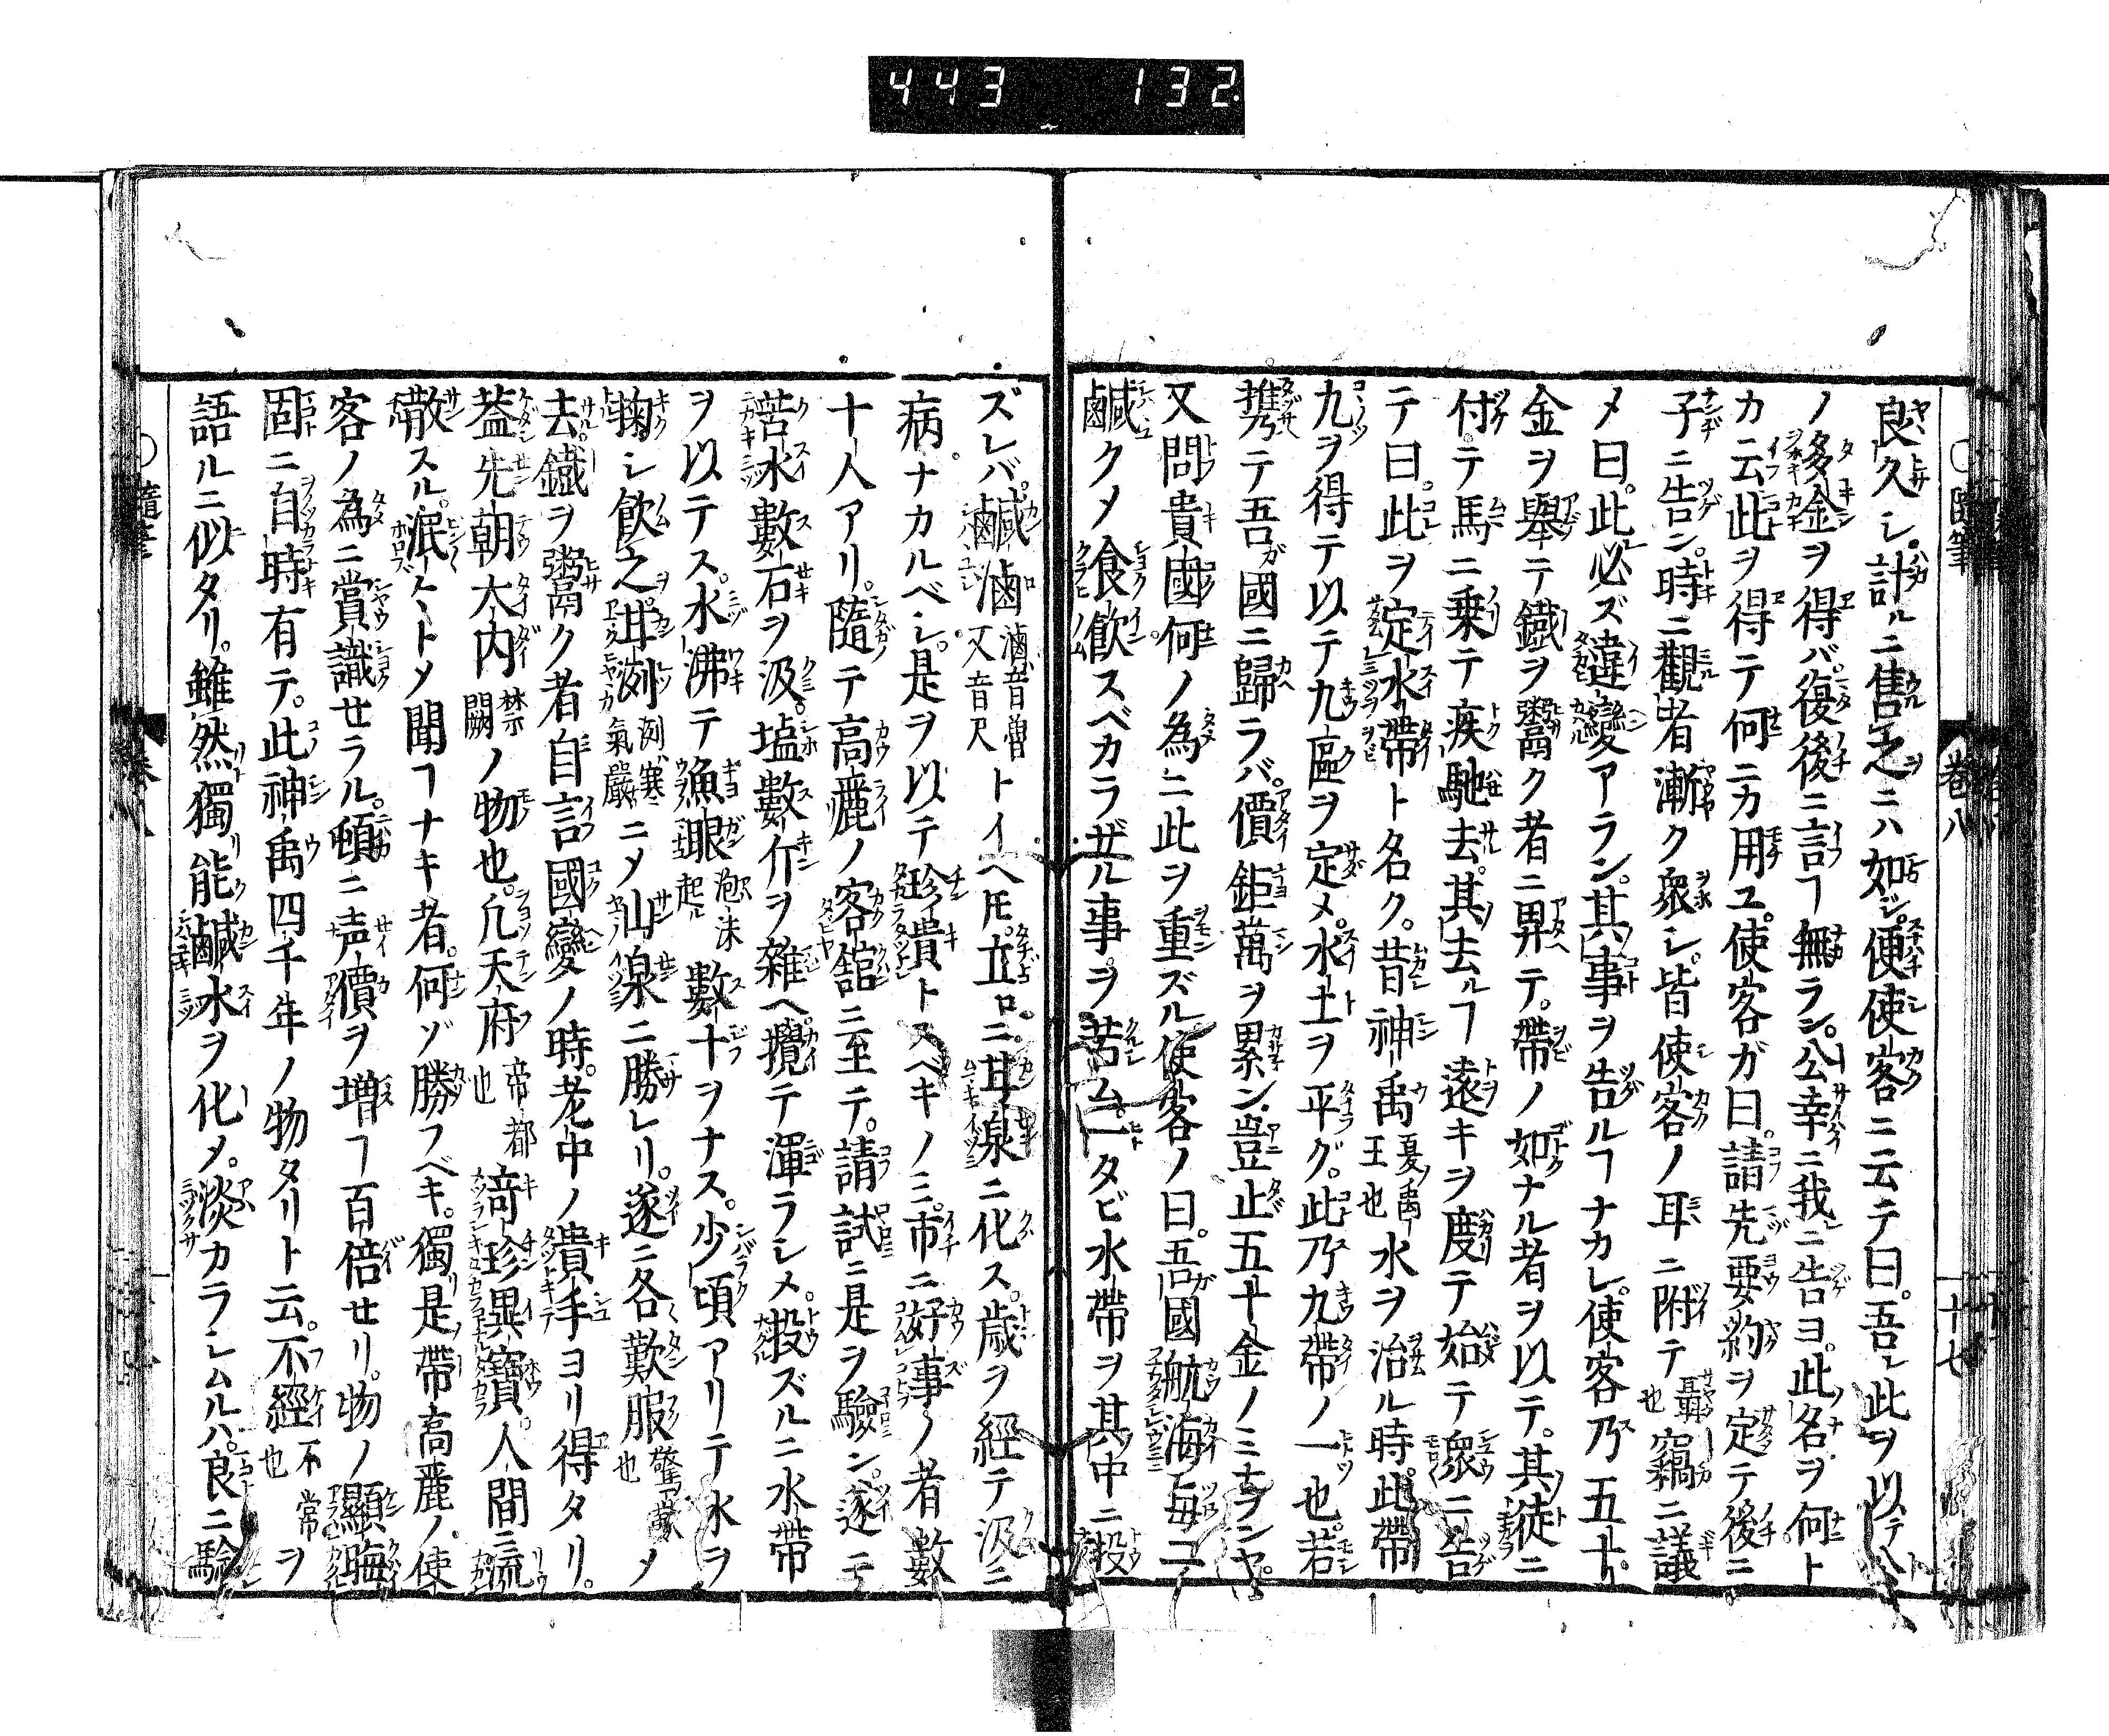 443 132
隨筆 巻八 十七
良久シ計ルニ售之ニハ如シ便使客ニ云テ曰。吾此ヲ以テ
ノ多金ヲ得バ復後ニ言フ無ラン。公幸ニ我ニ告ヨ。此名ヲ何ト
カ云此ヲ得テ何ニカ用ユ。使客ガ曰。請先要約ヲ定テ後ニ
子ニ告ン。時ニ觀者漸ク衆シ。皆使客ノ耳ニ附テ聶也竊ニ議
メ曰。此必ズ違變アラン。其事ヲ告ルヿナカレ。使客乃五十
金ヲ舉テ鐵ヲ鬻ク者ニ畀テ。帶ノ如ナル者ヲ以テ。其徒ニ
付テ馬ニ乗テ疾馳去。其去ルヿ遠キヲ度テ始テ衆ニ告
テ曰。此ヲ定水帶ト名ク。昔神禹夏ノ禹王也水ヲ治ル時。此帶
九ヲ得テ以テ九區ヲ定メ。水土ヲ平グ。此乃九帶ノ一也。若
携テ吾ガ國ニ歸ラバ。價鉅萬ヲ累ン。豈止五十金ノミナランヤ。
又問貴國何ノ為ニ此ヲ重ズル使客ノ曰。吾ガ國航海ヒ毎ニ
鹹クメ食飲スベカラザル事ヲ苦ム。一タビ水帶ヲ其中ニ投
ズレバ。鹹滷滷音魯又音尺トイヘ𪜈。立ロニ甘泉ニ化ス。歳ヲ經テ汲ニ
病ナカルベシ。是ヲ以テ珍貴トスベキノミ。市ニ好事ノ者數
十人アリ。隨テ高麗ノ客舘ニ至テ。請試ニ是ヲ驗ン。遂ニ
苦水數石ヲ汲。塩數斤ヲ雜ヘ。攪テ渾ラシメ。投ズルニ水帶
ヲ以テス。水沸テ漁眼泡沫起ル數十ヲナス。少頃アリテ水ヲ
掬シ飲之。甘洌洌ハ寒氣嚴ニメ山泉ニ勝レリ。遂ニ各歎服驚歎也メ
去。鐵ヲ鬻ク者自言國變ノ時。老中ノ貴手ヨリ得タリ。
蓋先朝大内禁闕ノ物也。凢天府帝都也竒珍異寶。人間ニ流
散スル。泯〱トメ聞ヿナキ者。何ゾ勝フベキ。獨是帶高麗ノ使
客ノ為ニ賞識せラル。頓ニ声價ヲ増ヿ百倍せリ。物ノ顯晦
固ニ自時有テ。此神禹四千年ノ物タリト云。不經不常也ヲ
語ルニ似タリ。雖然獨能鹹水ヲ化メ。淡カラシムルハ。良ニ驗
隨筆 巻八